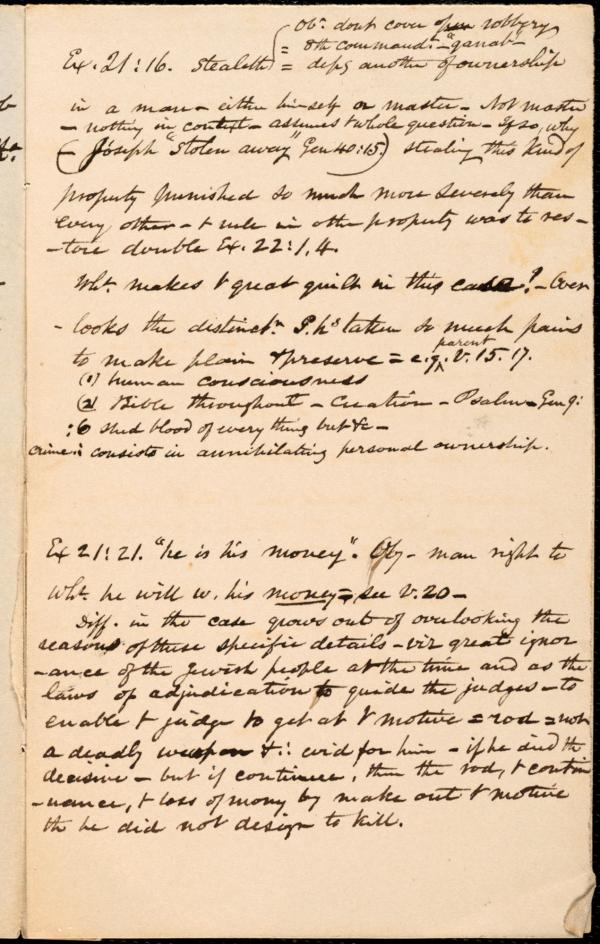 Obj. dont cover open robbery
= 8th command: - "ganab"
Ex. 21:16. Stealeth = deps another of ownership
in a man - either himself or master - Not master
- nothing in context - assumes t whole question - If so, why
(- "Joseph stolen away" Gen 40:15.) stealing this kind of
property punished so much more severely than
every other - t rule in othr property was to res-
-tore double Ex. 22:1,4.
Wht. makes t great guilt in this case? - Over-
-looks the distinctn. P.hs taken so much pains
to make plain & preserve = e.g. parent V. 15. 17.
(1) human consciousness
(2) Bible throughout - Creation - Psalm - Gen 9:
:6 shed blood of every thing but &c -
crime :: consists in annihilating personal ownership.
Ex 21:21. "he is his money". Obj - man right to
wht. he will w. his money = see V. 20 -
Diff. in the case grows out of overlooking the
reasons of these specific details - viz great ignor
-ance of the Jewish people at the time and as the
laws of adjudication to guide the judges - to
enable t judge to get at t motive = rod = not
a deadly weapon & :: evid for him - if he died th
decisive - but if continue, then the rod, t contin
-uance, t loss of mony by make out t motive
th he did not design to kill.